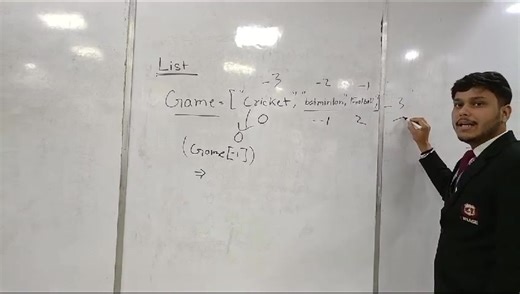 List
-3 -2 -1
Game = ["Cricket", "batminton", "football"] - 3
0 --1 2
0
(Game[-1])
⇒